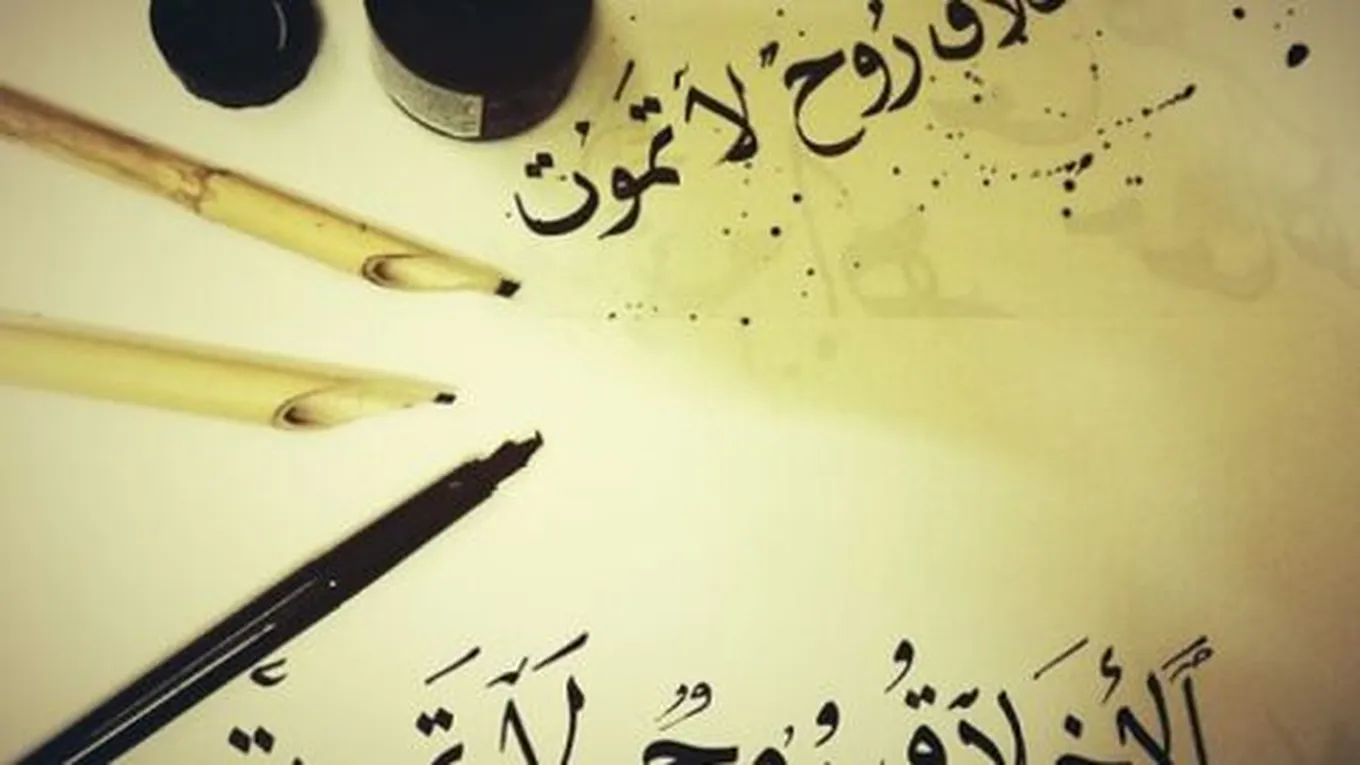 لاق رُوح" لاَ تموُت
اَلأَخلَاقُ رُوُحٌ لَاَ تَموتَ